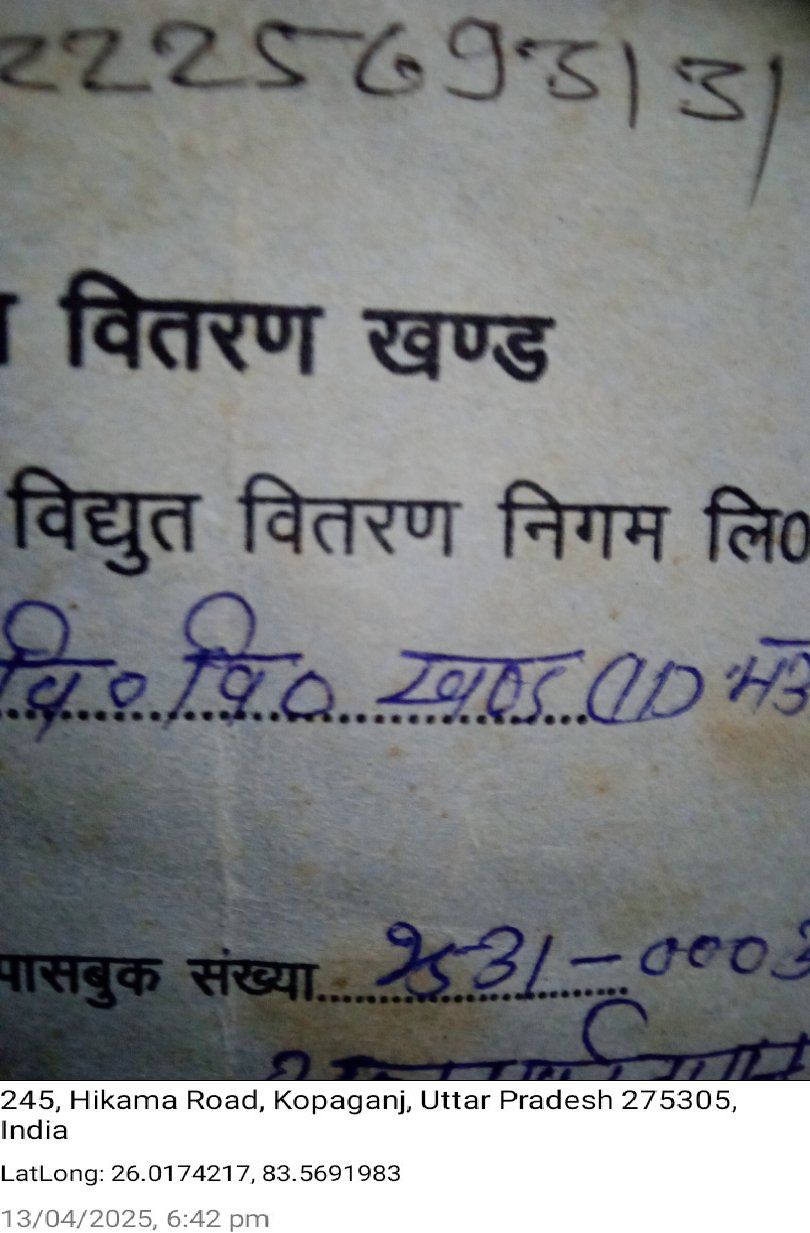 2225693131
वितरण खण्ड
विद्युत वितरण निगम लि०
वि० वि० खण्ड
पासबुक संख्या 2531-0003
245, Hikama Road, Kopaganj, Uttar Pradesh 275305,
India
LatLong: 26.0174217, 83.5691983
13/04/2025, 6:42 pm